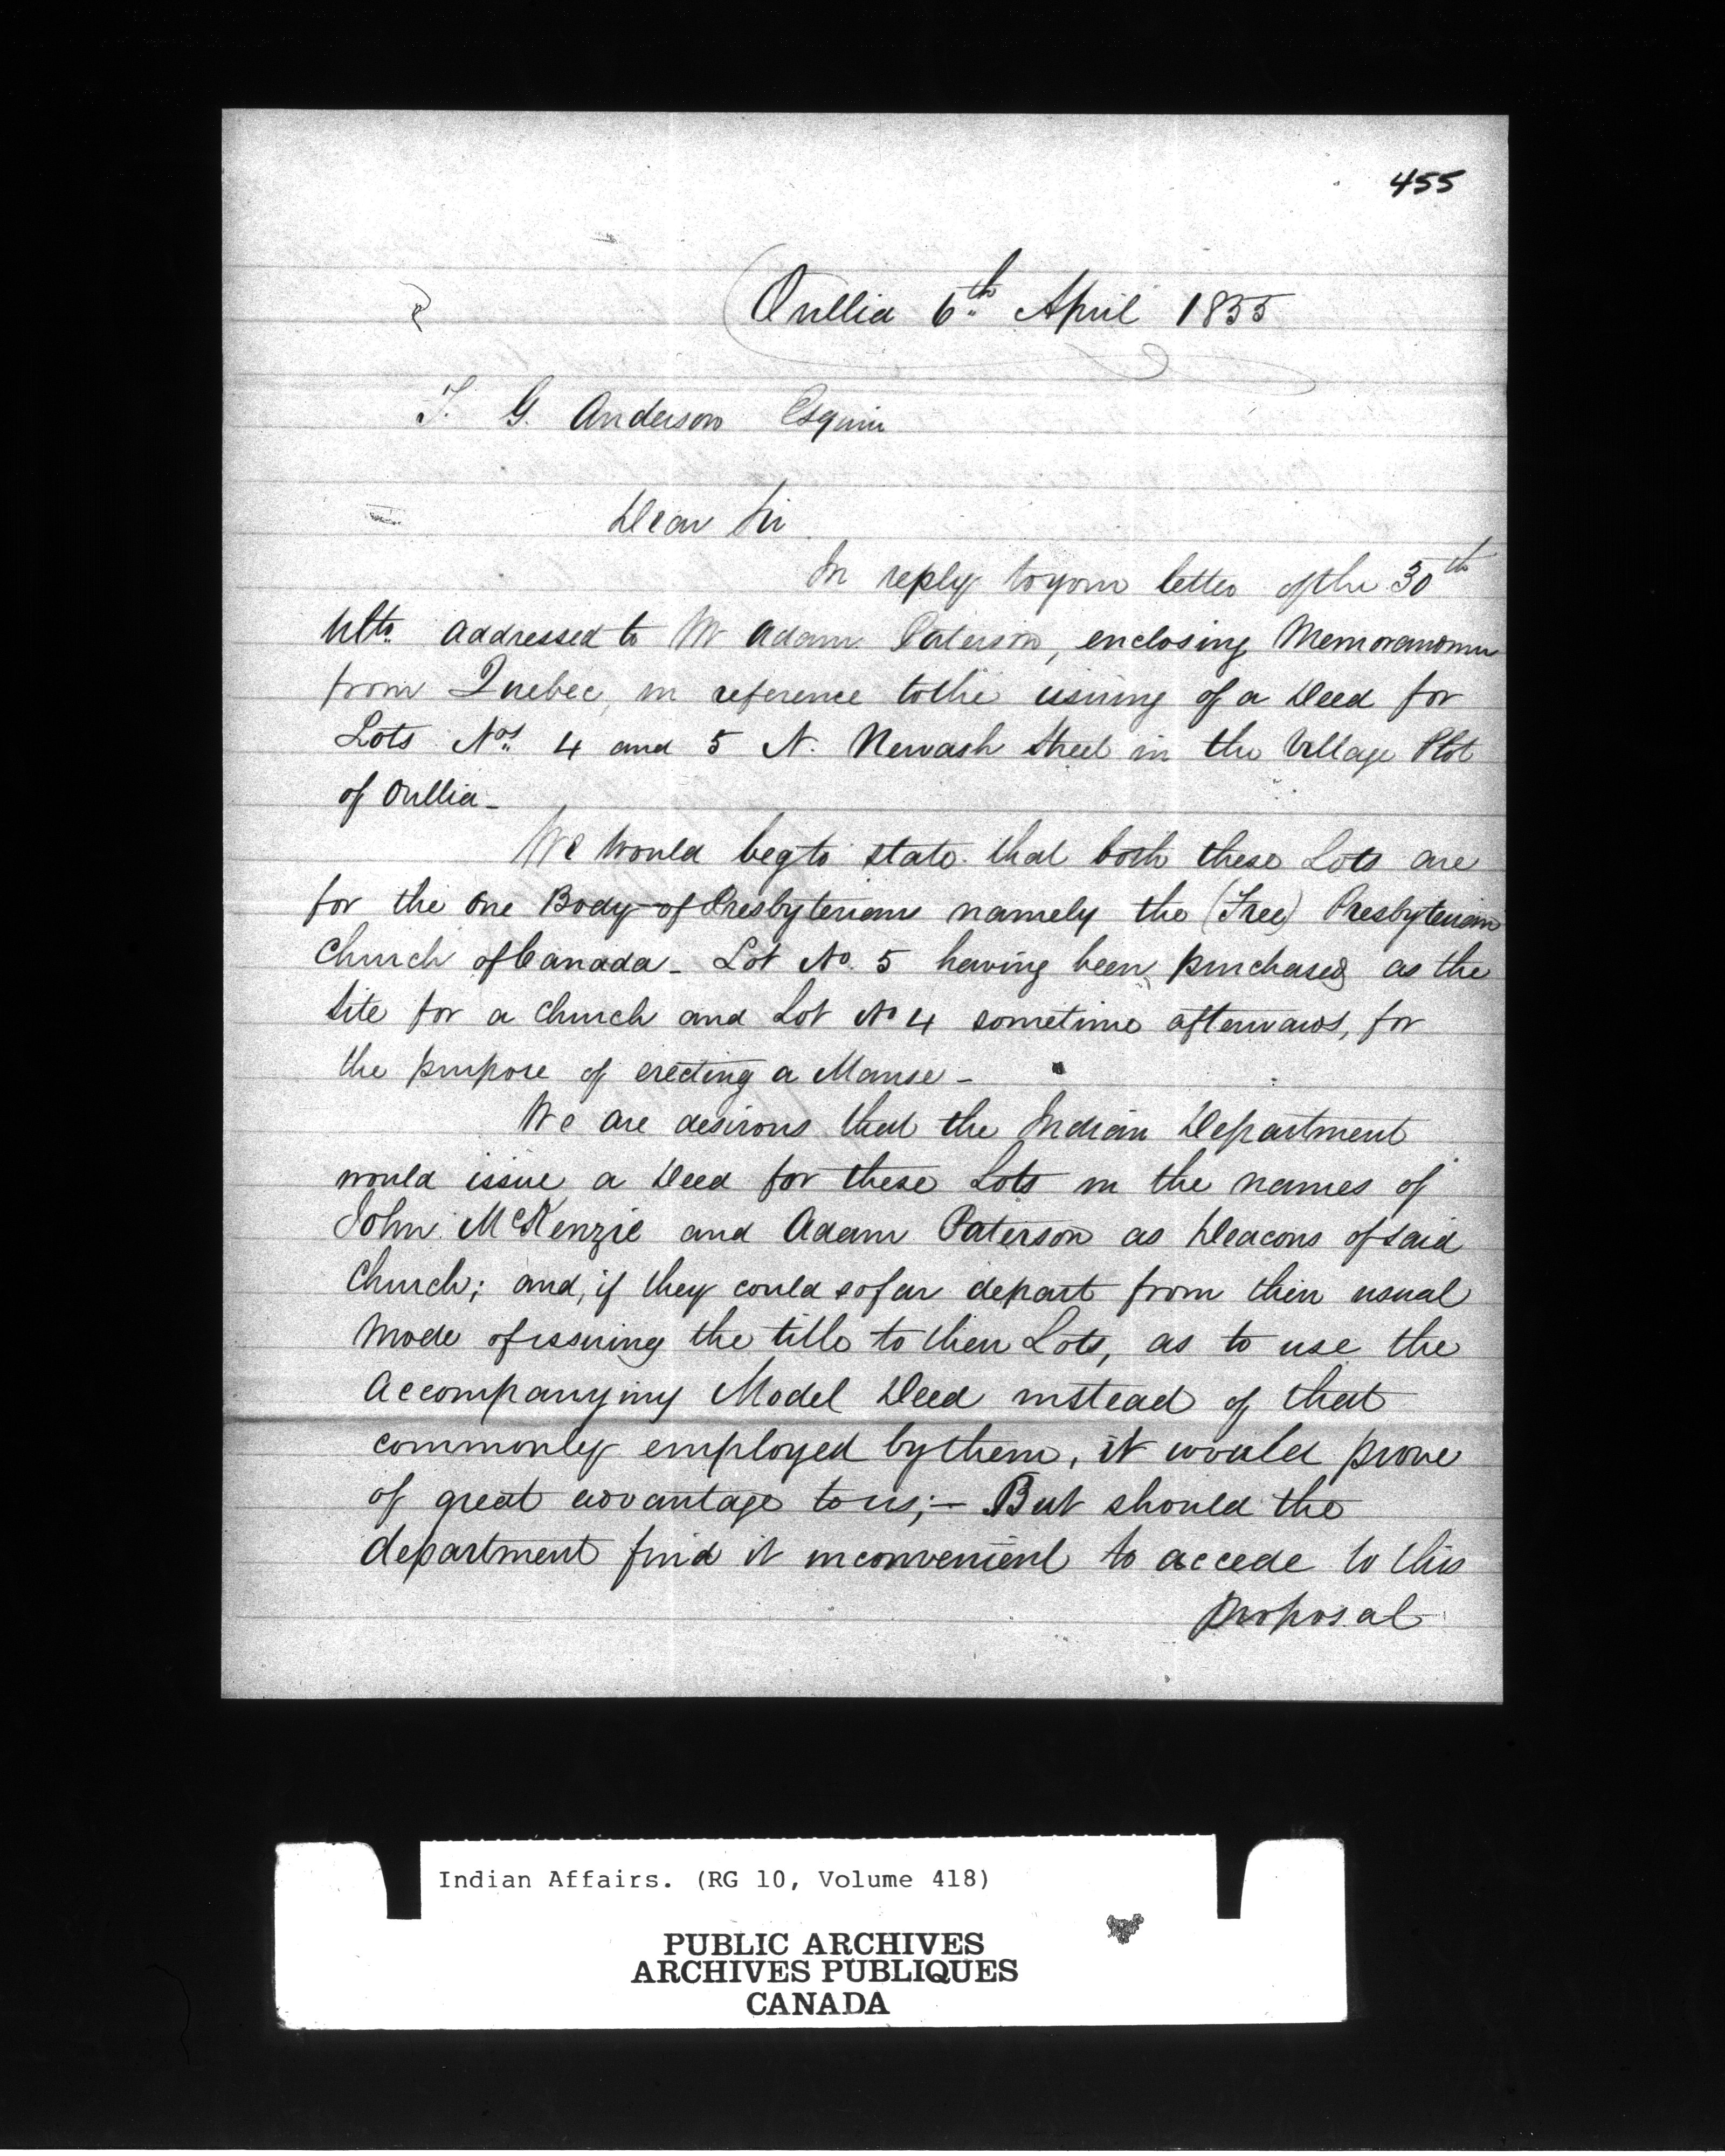 455
Orillia 6th April 1855
T. G. Anderson Esquire
Dear Sir
In reply to your letter of the 30th
Ulto. addressed to Mr Adam Paterson, enclosing Memorandum
from Quebec, in reference to the issuing of a Deed for
Lots Nos. 4 and 5 N. Newash Street in the Village Plot
of Orillia -
We would beg to state that both these Lots are
for the one Body of Presbyterians namely the (Free) Presbyterian
Church of Canada - Lot No. 5 having been purchased as the
Site for a Church and Lot No 4 sometime afterwards, for
the purpose of erecting a Manse -
We are desirous that the Indian Department
would issue a Deed for these Lots in the names of
John McKenzie and Adam Paterson as Deacons of said
Church; and, if they could so far depart from their usual
mode of issuing the title to their Lots, as to use the
accompanying Model Deed instead of that
commonly employed by them, it would prove
of great advantage to us; - But should the
department find it inconvenient to accede to this
proposal
Indian Affairs. (RG 10, Volume 418)
PUBLIC ARCHIVES
ARCHIVES PUBLIQUES
CANADA